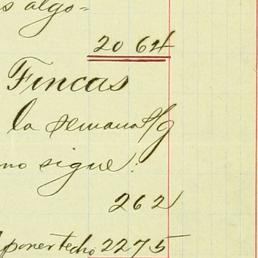 s algo=
20 64
Fincas
la semana s/g
no sigue:
262
poner techo 2275